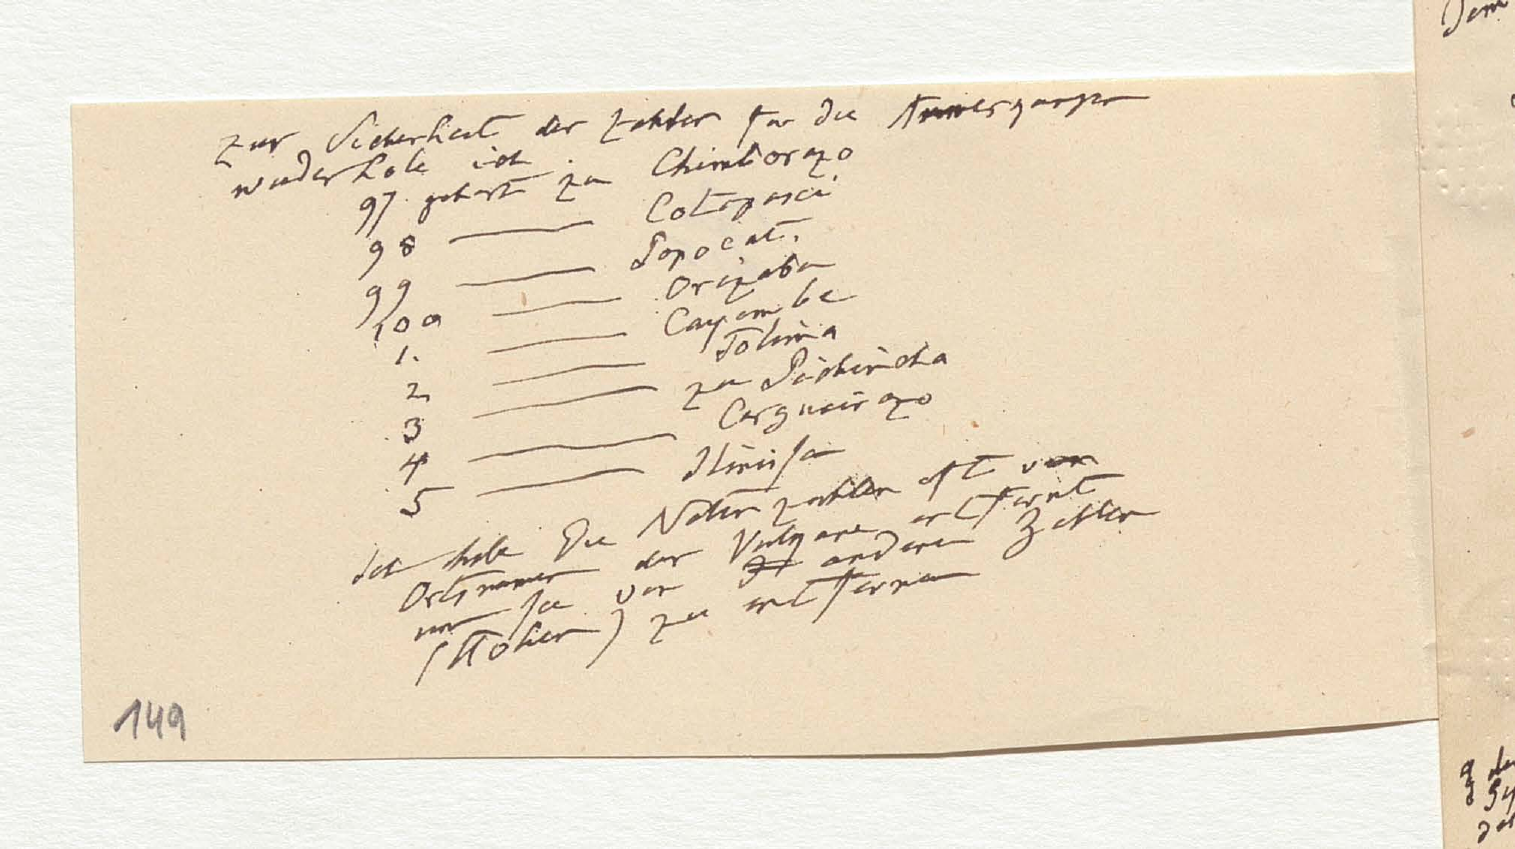 Zur Sicherheit der Zahlen für die Anmerkungen
wiederhole ich
97 gehört zu Chimborazo
98 — Cotopaxi
99 — Popocat.
100 — Orizaba
1. — Cayambe
2 — Tolima
3 — zu Pichincha
4 — Carguairazo
5 — Iliniſa
Ich habe die Noten zahlen oft von
Ortsnamen der Vulkane entfernt
um ſie von anderen Zahlen
(Höhen) zu entfernen
149